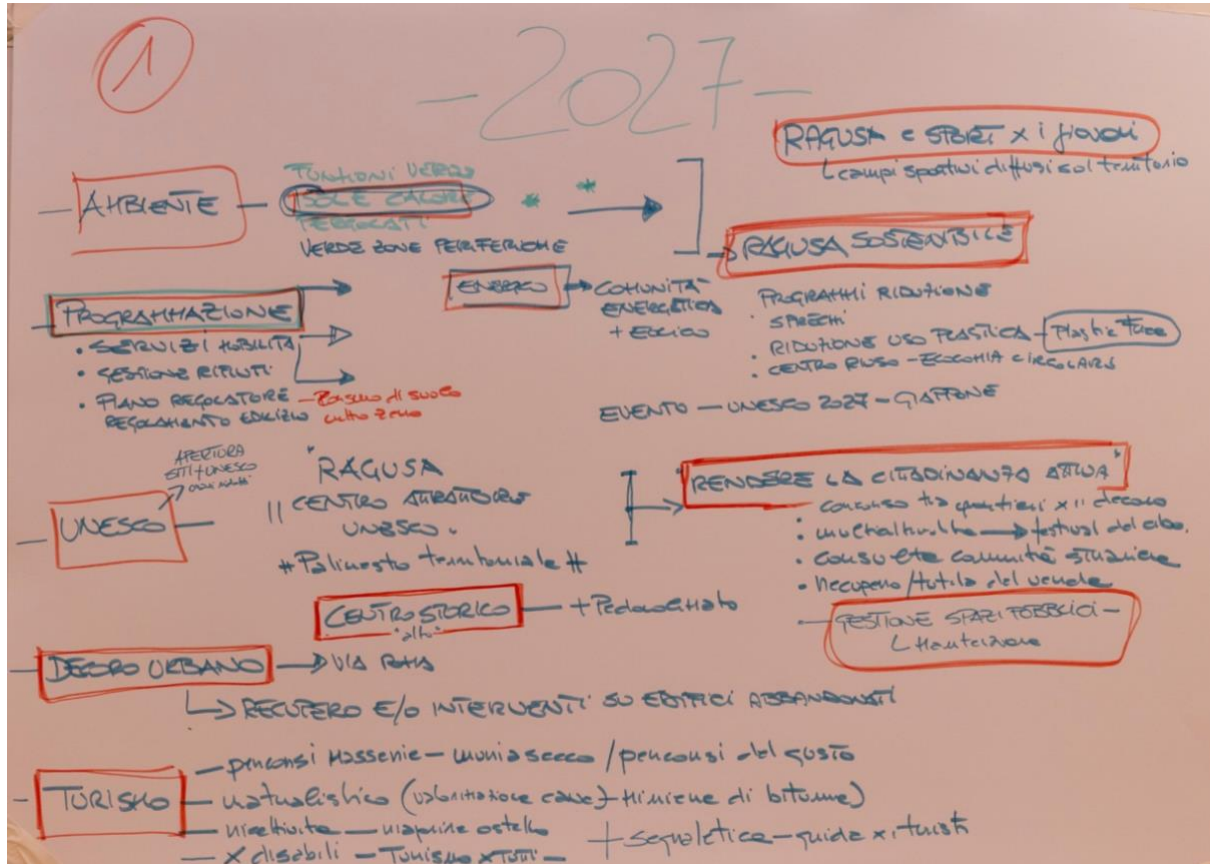 1
- 2027 -
RAGUSA e SPORT x i giovani
campi sportivi diffusi sul territorio
- AMBIENTE -
SOLE CALORE
VERDE ZONE PERIFERICHE
RAGUSA SOSTENIBILE
PROGRAMMI RIDUZIONE
SPRECHI
• RIDUZIONE USO PLASTICA - Plastic Free
• CENTRO RIUSO - ECONOMIA CIRCOLARE
COMUNITÀ
ENERGETICA
+ EOLICO
- PROGRAMMAZIONE
• SERVIZI MOBILITÀ
• GESTIONE RIFIUTI
• PIANO REGOLATORE - Consumo di suolo
REGOLAMENTO EDILIZIO zero
EVENTO - UNESCO 2027 - GIAPPONE
- UNESCO -
APERTURA
SITI UNESCO
"RAGUSA
CENTRO ATTRATTORE
UNESCO"
# Palinsesto territoriale #
"RENDERE LA CITTADINANZA ATTIVA"
concorso tra quartieri x il decoro
• festival del cibo.
• consulta comunità straniere
• recupero/tutela del verde
- GESTIONE SPAZI PUBBLICI -
Manutenzione
CENTRO STORICO - + Pedonalizzato
- DECORO URBANO → VIA ROMA
RECUPERO E/O INTERVENTI SU EDIFICI ABBANDONATI
- TURISMO
- percorsi Masserie - muri a secco / percorsi del gusto
- naturalistico (valorizzazione cave + Miniere di bitume)
- ricettività - riaprire ostello
- X disabili - Turismo X TUTTI -
+ segnaletica - guida x i turisti